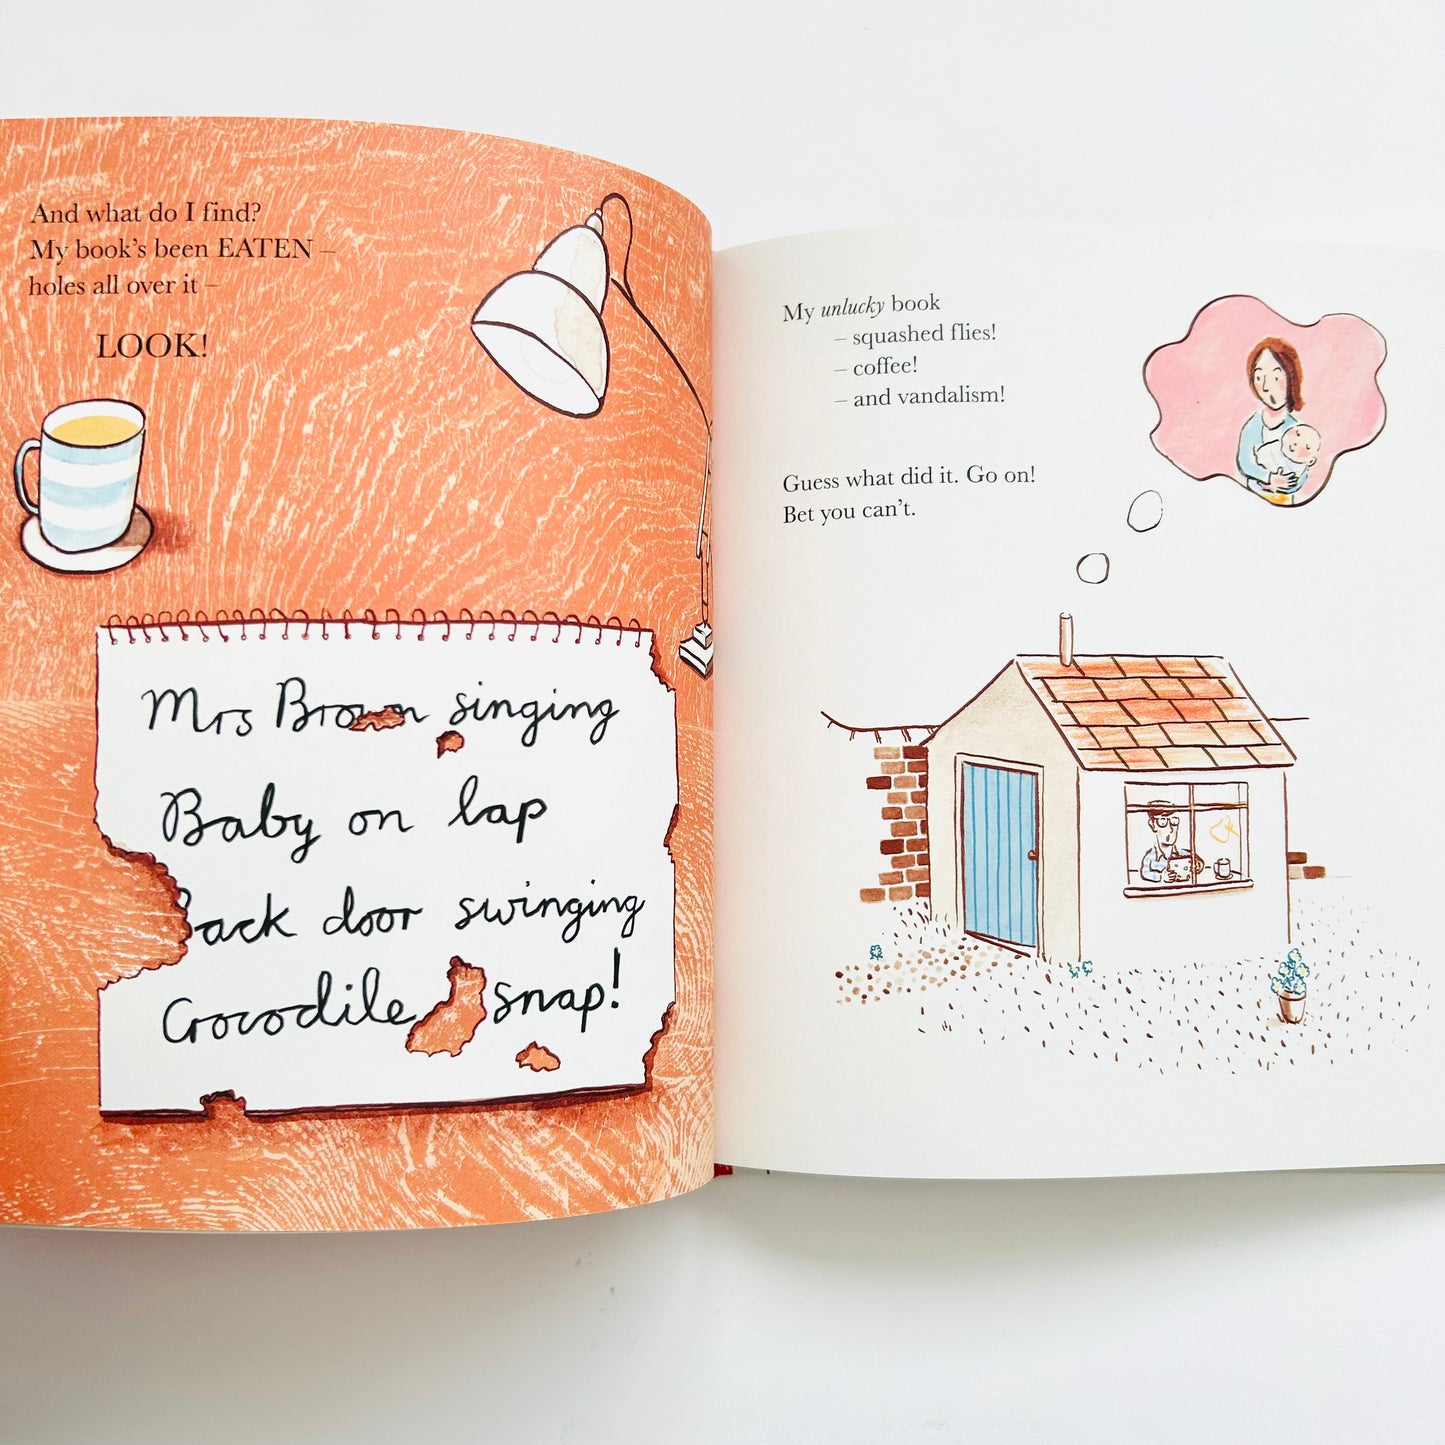 And what do I find?
My book's been EATEN –
holes all over it –
LOOK!
Mrs Brown singing
Baby on lap
Back door swinging
Crocodile snap!
My unlucky book
– squashed flies!
– coffee!
– and vandalism!
Guess what did it. Go on!
Bet you can't.